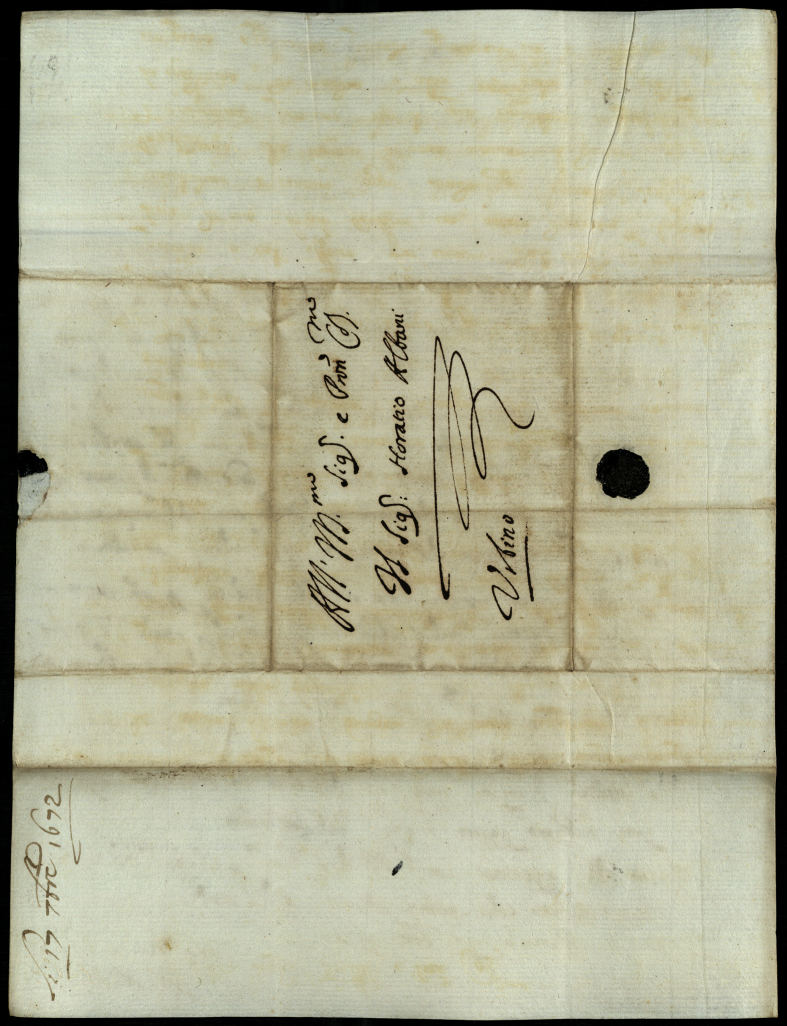 All' Ill.mo Sig.r e Pron C.mo
Il Sig.r Horatio Albani
Urbino
li 17 7bre 1672